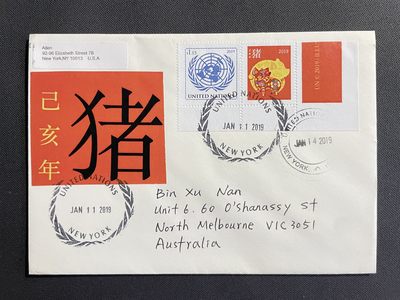 Allen
92-96 Elizabeth Street 7B
New York, NY 10013 U.S.A
己亥年
猪
2019
UNITED NATIONS
猪
2019
UNITED NATIONS
JAN 11 2019
NEW YORK
UNITED NATIONS
JAN 14 2019
NEW YORK
UNITED NATIONS
JAN 11 2019
NEW YORK
Bin Xu Nan
Unit 6. 60 O'shanassy st
North Melbourne VIC 3051
Australia